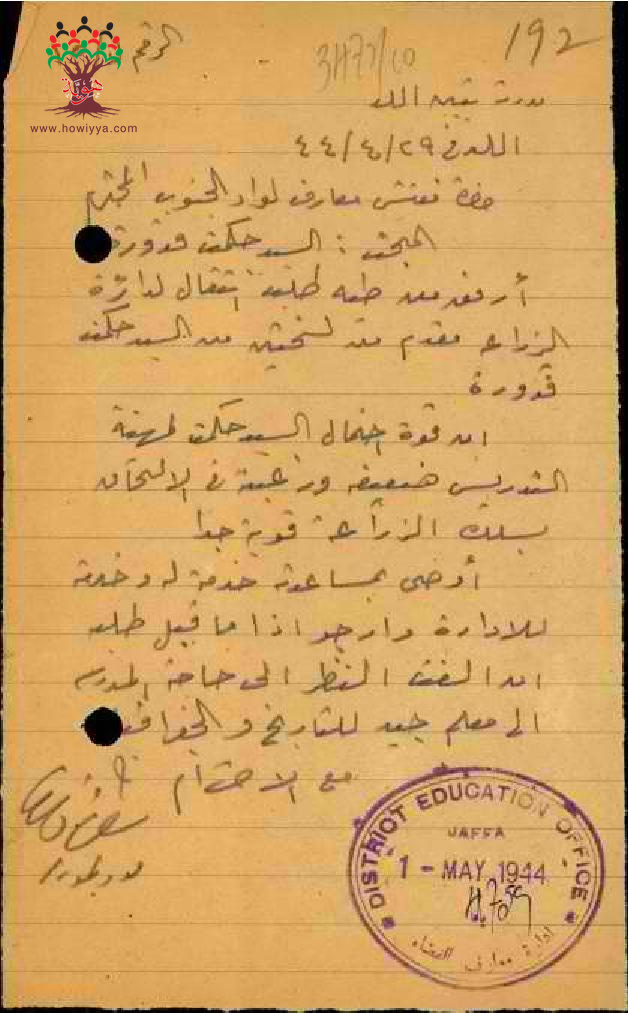 الرقم
192
3H77/10
www.howiyya.com
مدرسة بنين اللد
اللد في ٢٩/٤/٤٤
حضرة مفتش معارف لواء الجنوب المحترم
المبحث : السيد حكمت قدورة
أرفع من طيه طلب انتقال لدائرة
الزراعة مقدم من نسختين من السيد حكمت
قدورة
ان قوة احتمال السيد حكمت لمهنة
التدريس ضعيفة ورغبته في الالتحاق
بسلك الزراعة قوية جدا
أوصي بمساعدته خدمة له وخدمة
للادارة وارجو اذا ما قبل طلبه
ان الفت النظر الى حاجة المدرسة
الى معلم جيد للتاريخ والجغرافية
مع الاحترام
DISTRICT EDUCATION OFFICE
JAFFA
1 - MAY 1944
ادارة معارف القضاء